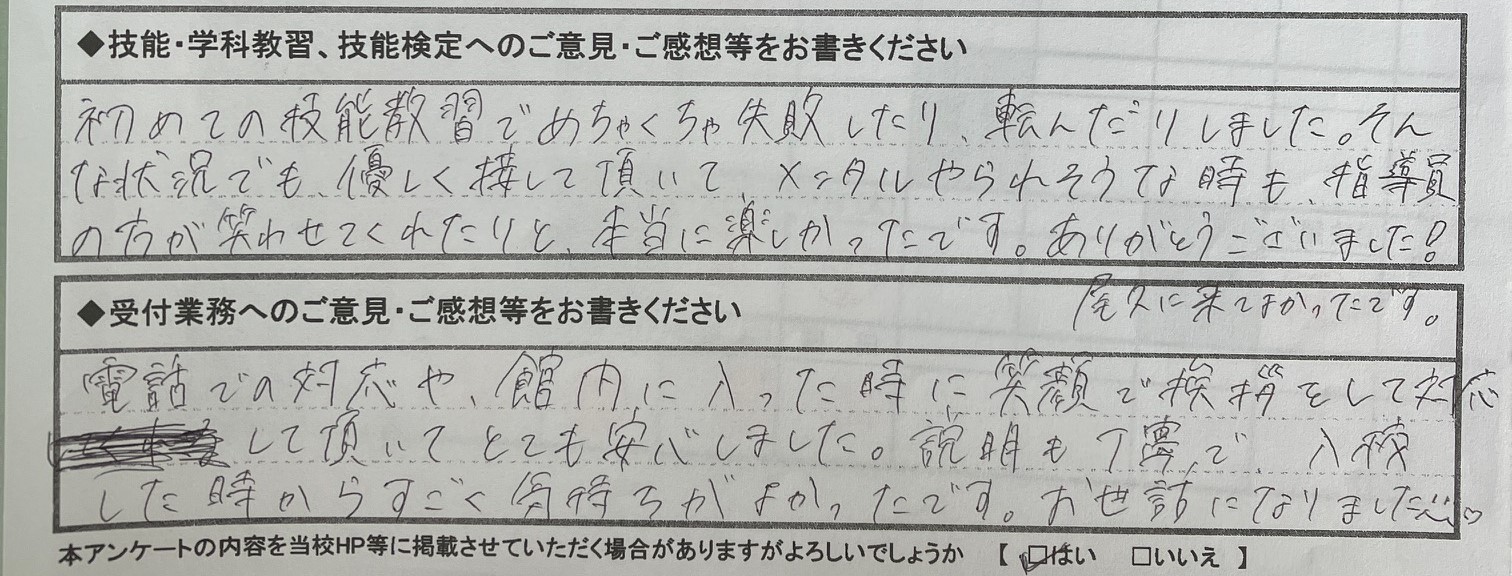 ◆技能・学科教習、技能検定へのご意見・ご感想等をお書きください
初めての技能教習でめちゃくちゃ失敗したり、転んだりしました。そん
な状況でも、優しく接して頂いて、メンタルやられそうな時も、指導員
の方が笑わせてくれたりと、本当に楽しかったです。ありがとうございました!
◆受付業務へのご意見・ご感想等をお書きください
尾久に来てよかったです。
電話での対応や、館内に入った時に笑顔で挨拶をして対応
して頂いてとても安心しました。説明も丁寧で、入校
した時からすごく気持ちがよかったです。お世話になりました
本アンケートの内容を当校HP等に掲載させていただく場合がありますがよろしいでしょうか 【 □はい □いいえ 】